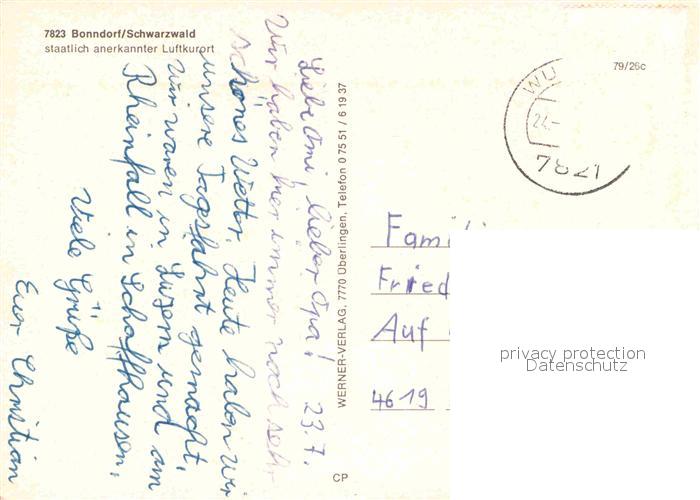 7823 Bonndorf/Schwarzwald
staatlich anerkannter Luftkurort
23.7.
Liebe Omi, lieber Opa!
Wir haben hier immer noch sehr
schönes Wetter. Heute haben wir
unsere Tagesfahrt gemacht.
Wir waren in Luzern und am
Rheinfall in Schaffhausen.
Viele Grüße
Euer Christian
WERNER-VERLAG, 7770 Überlingen, Telefon 0 75 51 / 6 19 37
CP
79/26c
WU
24.-
7821
Fami
Fried
Auf
4619
privacy protection
Datenschutz